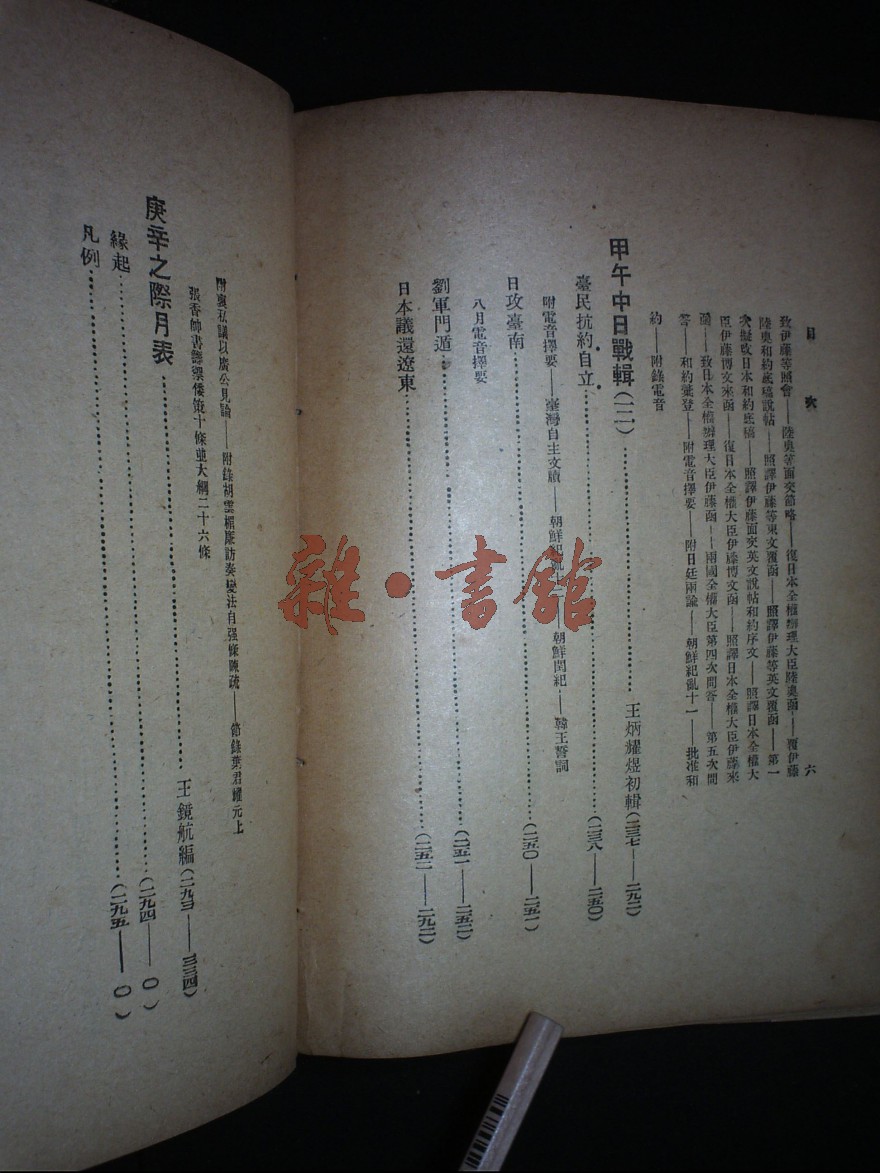 目　次　　六
致伊藤等照會——陸奧等面交節略——復日本全權辦理大臣陸奧函——覆伊藤
陸奧和約底稿說帖——照譯伊藤等東文覆函——照譯伊藤等英文覆函——第一
次擬改日本和約底稿——照譯伊藤面交英文說帖和約序文——照譯日本全權大
臣伊藤博文來函——復日本全權大臣伊藤博文函——照譯日本全權大臣伊藤來
函——致日本全權辦理大臣伊藤函——兩國全權大臣第四次問答——第五次問
答——和約彙登——附電音擇要——附日廷兩論——朝鮮紀亂十一——批准和
約——附錄電音
甲午中日戰輯(二)……王炳耀煜初輯(二三七——二九二)
臺民抗約自立……(二三八——二五〇)
附電音擇要——臺灣自主文牘——朝鮮紀亂——朝鮮閏紀——韓王誓詞
日攻臺南……(二五〇——二五一)
八月電音擇要
劉軍門遁……(二五一——二五二)
日本議還遼東……(二五二——二九二)
附裏私議以廣公見論——附錄胡雲楣廉訪奏變法自强條陳疏——節錄葉君耀元上
張香帥書籌禦倭策十條並大綱二十六條
庚辛之際月表……王鏡航編(二九三——三三四)
緣起……(二九四——〇)
凡例……(二九五——〇)
雜·書館